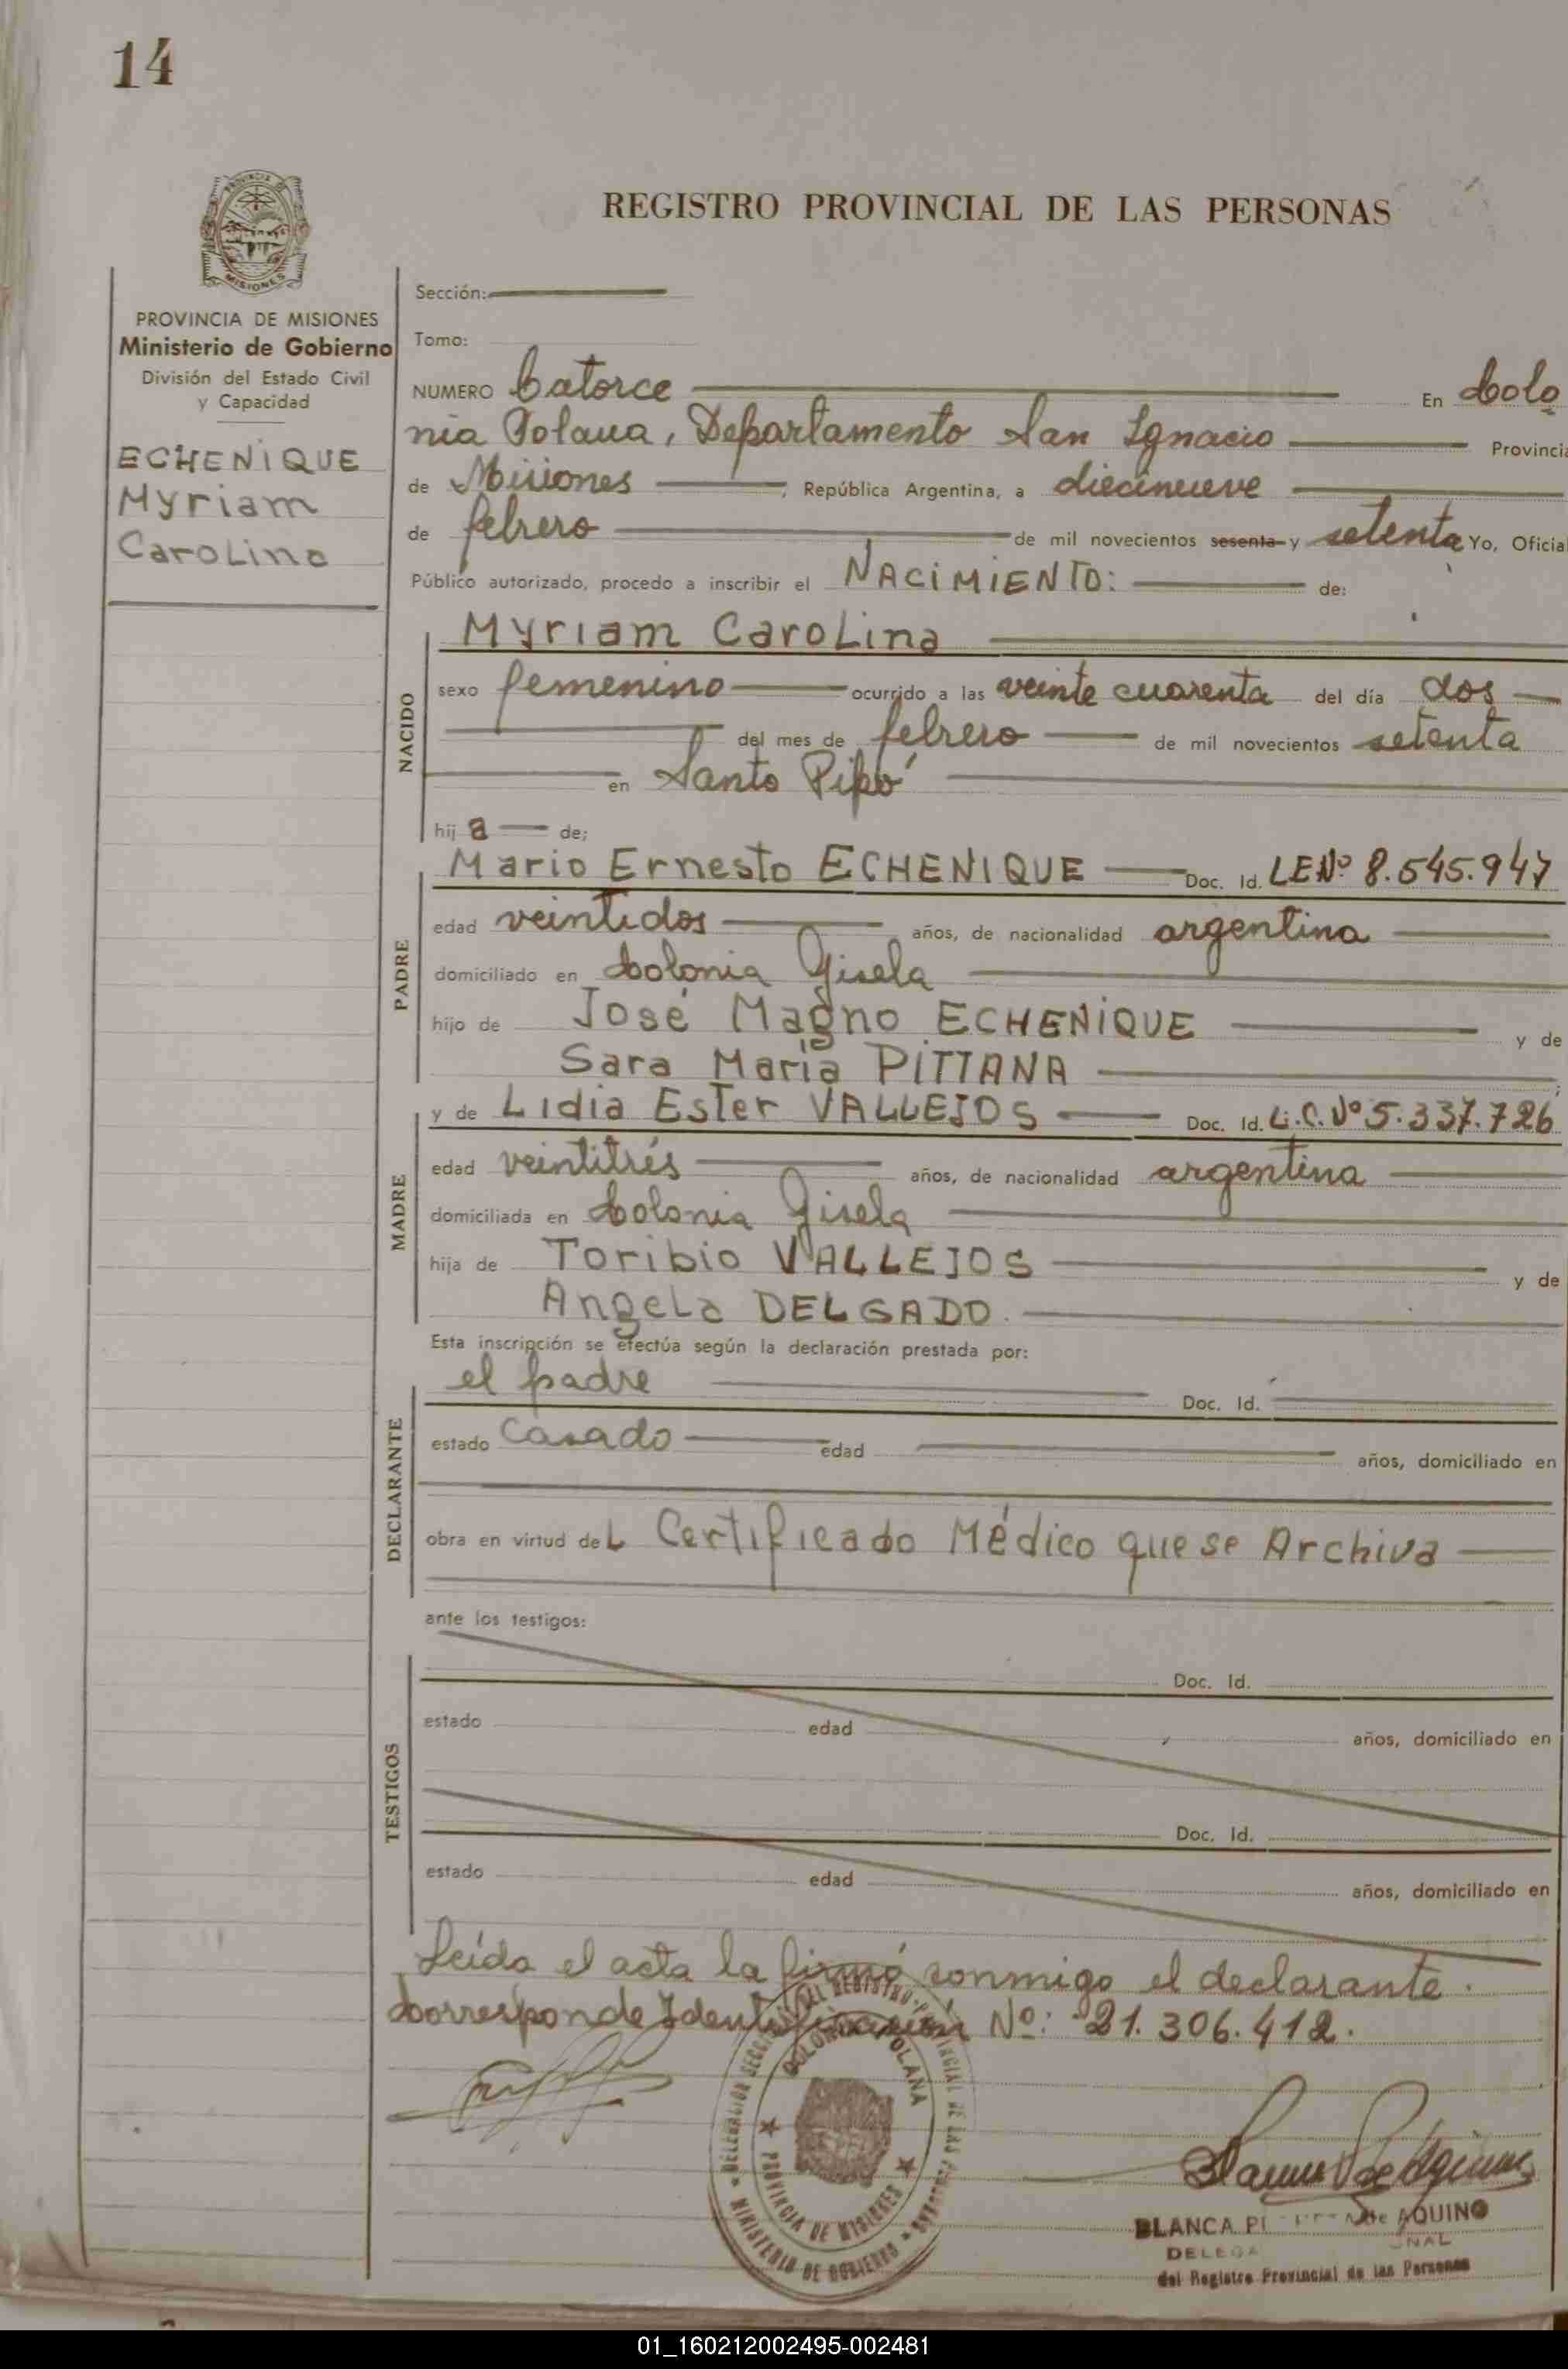 14
PROVINCIA DE
MISIONES
REGISTRO PROVINCIAL DE LAS PERSONAS
PROVINCIA DE MISIONES
Ministerio de Gobierno
División del Estado Civil
y Capacidad
ECHENIQUE
Myriam
Carolina
Sección:
Tomo:
NUMERO Catorce En Colo
nia Polana, Departamento San Ignacio Provincia
de Misiones , República Argentina, a diecinueve
de febrero de mil novecientos sesenta y setenta Yo, Oficial
Público autorizado, procedo a inscribir el NACIMIENTO: de:
NACIDO
Myriam Carolina
sexo femenino ocurrido a las veinte cuarenta del día dos
del mes de febrero de mil novecientos setenta
en Santo Pipó
hij a de;
PADRE
Mario Ernesto ECHENIQUE Doc. Id. LE Nº 8.545.947
edad veintidos años, de nacionalidad argentina
domiciliado en Colonia Gisela
hijo de José Magno ECHENIQUE y de
Sara María PITTANA
MADRE
y de Lidia Ester VALLEJOS Doc. Id. L.C. Nº 5.337.726
edad veintitrés años, de nacionalidad argentina
domiciliada en Colonia Gisela
hija de Toribio VALLEJOS y de
Angela DELGADO.
Esta inscripción se efectúa según la declaración prestada por:
DECLARANTE
el padre Doc. Id.
estado Casado edad años, domiciliado en
obra en virtud del Certificado Médico que se Archiva
ante los testigos:
TESTIGOS
Doc. Id.
estado edad años, domiciliado en
Doc. Id.
estado edad años, domiciliado en
Leída el acta la firmó conmigo el declarante.
Corresponde Identificación Nº: 21.306.412.
COLONIA POLANA
PROVINCIA DE MISIONES
MINISTERIO DE GOBIERNO
BLANCA de AQUINO
del Registro Provincial de las Personas
01_160212002495-002481